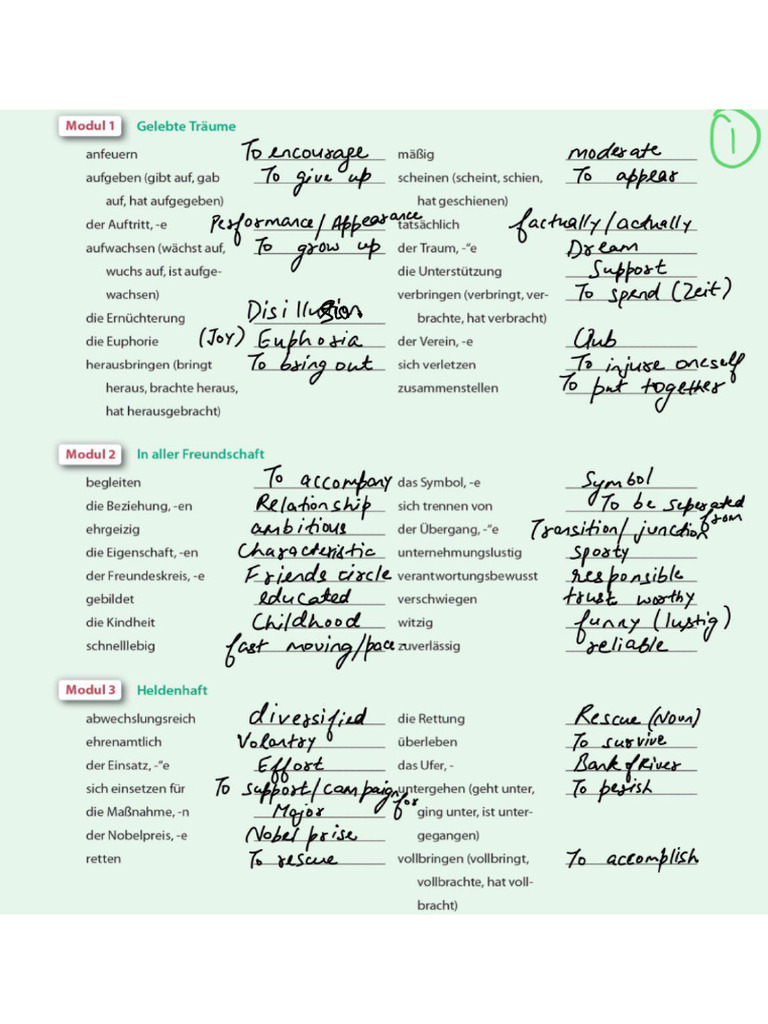 Modul 1 Gelebte Träume
1
anfeuern To encourage
aufgeben (gibt auf, gab To give up
auf, hat aufgegeben)
der Auftritt, -e Performance/Appearance
aufwachsen (wächst auf, To grow up
wuchs auf, ist aufge-
wachsen)
die Ernüchterung Disillusion
die Euphorie (Joy) Euphoria
herausbringen (bringt To bring out
heraus, brachte heraus,
hat herausgebracht)
mäßig moderate
scheinen (scheint, schien, To appear
hat geschienen)
tatsächlich factually/actually
der Traum, -"e Dream
die Unterstützung Support
verbringen (verbringt, ver- To spend (Zeit)
brachte, hat verbracht)
der Verein, -e Club
sich verletzen To injure oneself
zusammenstellen To put together
Modul 2 In aller Freundschaft
begleiten To accompany
die Beziehung, -en Relationship
ehrgeizig ambitious
die Eigenschaft, -en Characteristic
der Freundeskreis, -e Friends circle
gebildet educated
die Kindheit Childhood
schnelllebig fast moving/pace
das Symbol, -e Symbol
sich trennen von To be seperated from
der Übergang, -"e Transition/junction
unternehmungslustig sporty
verantwortungsbewusst responsible
verschwiegen trust worthy
witzig funny (lustig)
zuverlässig reliable
Modul 3 Heldenhaft
abwechslungsreich diversified
ehrenamtlich Volontry
der Einsatz, -"e Effort
sich einsetzen für To support/campaign for
die Maßnahme, -n Major
der Nobelpreis, -e Nobel prise
retten To rescue
die Rettung Rescue (Noun)
überleben To survive
das Ufer, - Bank of River
untergehen (geht unter, To perish
ging unter, ist unter-
gegangen)
vollbringen (vollbringt, To accomplish
vollbrachte, hat voll-
bracht)